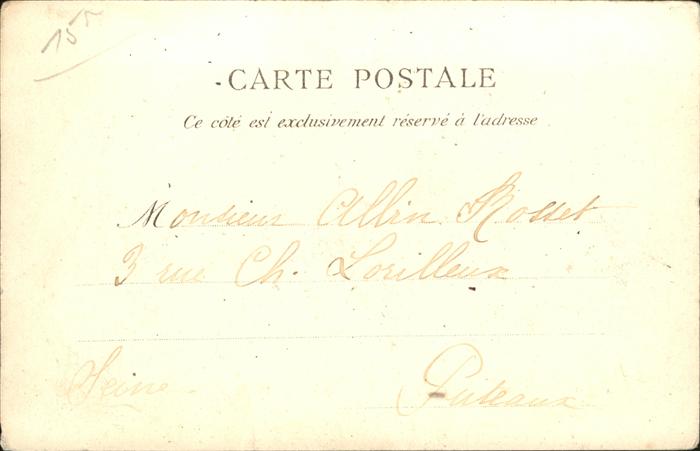 155
CARTE POSTALE
Ce côté est exclusivement réservé à l'adresse
Monsieur Albin Rosset
3 rue Ch. Lorilleux
Seine Puteaux